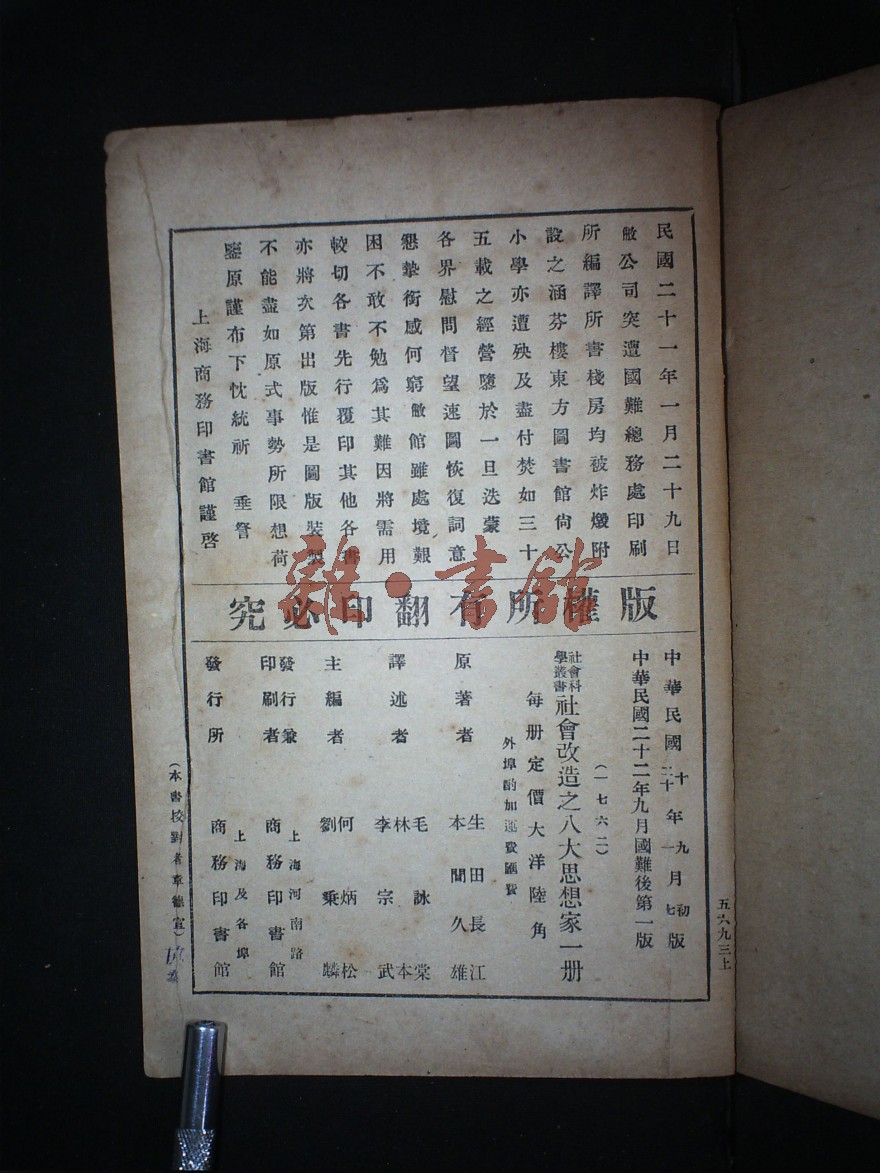 民國二十一年一月二十九日
敝公司突遭國難總務處印刷
所編譯所書棧房均被炸燬附
設之涵芬樓東方圖書館尚公
小學亦遭殃及盡付焚如三十
五載之經營隳於一旦迭蒙
各界慰問督望速圖恢復詞意
懇摯銜感何窮敝館雖處境艱
困不敢不勉爲其難因將需用
較切各書先行覆印其他各書
亦將次第出版惟是圖版裝製
不能盡如原式事勢所限想荷
鑒原謹布下忱統祈 垂詧
上海商務印書館謹啓
版權所有翻印必究
雜·書館
中華民國十年九月初版
二十年一月七版
中華民國二十二年九月國難後第一版
(一七六二)
社會科學叢書 社會改造之八大思想家一册
每册定價大洋陸角
外埠酌加運費匯費
原著者 生田長江 本間久雄
譯述者 毛詠棠 林本 李宗武
主編者 何炳松 劉秉麟
發行兼印刷者 上海河南路 商務印書館
發行所 上海及各埠 商務印書館
(本書校對者章德宣)
五六九三上